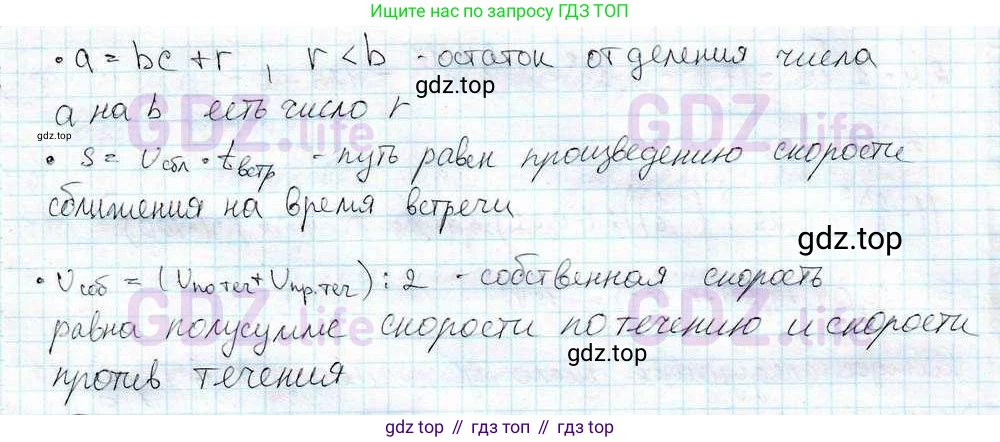 Ищите нас по запросу ГДЗ ТОП
• a = bc + r , r < b - остаток от деления числа
gdz.top
a на b есть число r
gdz.top
GDZ.life GDZ.life
• s = v сбл • t встр - путь равен произведению скорости
сближения на время встречи
gdz.top
• v соб = (v по теч + v пр. теч) : 2 - собственная скорость
GDZ.life GDZ.life
равна полусумме скорости по течению и скорости
gdz.top
против течения
gdz.top // гдз.топ // гдз.top